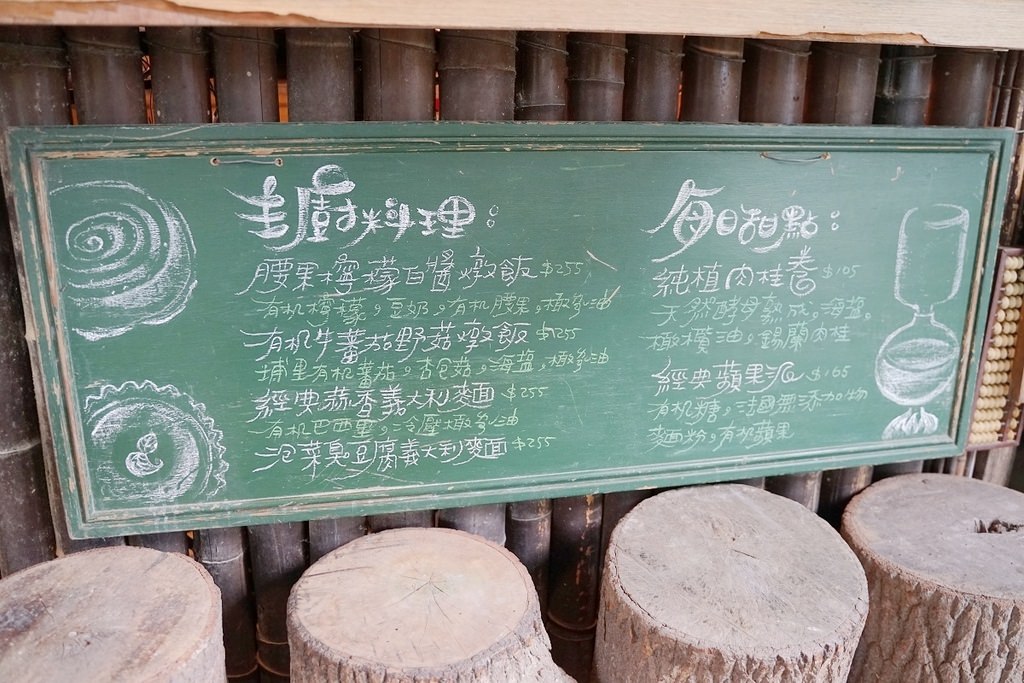 主廚料理：
腰果檸檬白醬燉飯 $255
有机檸檬，豆奶，有机腰果，橄欖油
有机牛蕃茄野菇燉飯 $255
埔里有机蕃茄，杏包菇，海盐，橄欖油
經典蒜香義大利麵 $255
有机巴西里，冷壓橄欖油
泡菜臭豆腐義大利麵 $255
每日甜點：
純植肉桂卷 $105
天然酵母熟成，海盐。
橄欖油，錫蘭肉桂
經典蘋果派 $165
有机糖，法國無添加物
麵粉，有机蘋果